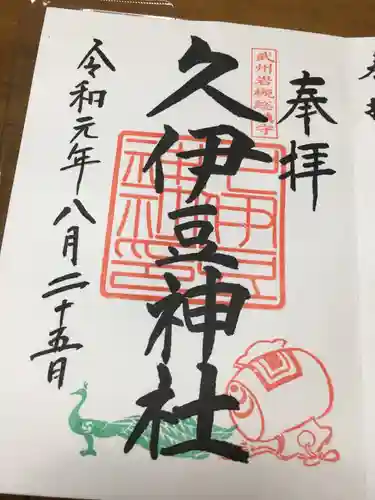 奉拝
武州岩槻総鎮守
久伊豆神社
令和元年八月二十五日